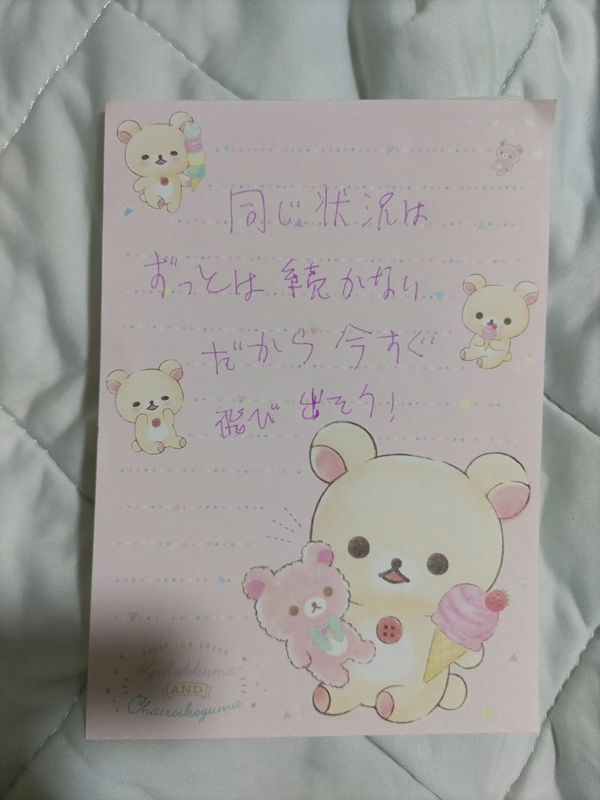 同じ状況は
ずっとは続かない
だから今すぐ
飛び出そう！
HAPPY ICE CREAM
Korilakkuma
AND
Chairoikoguma